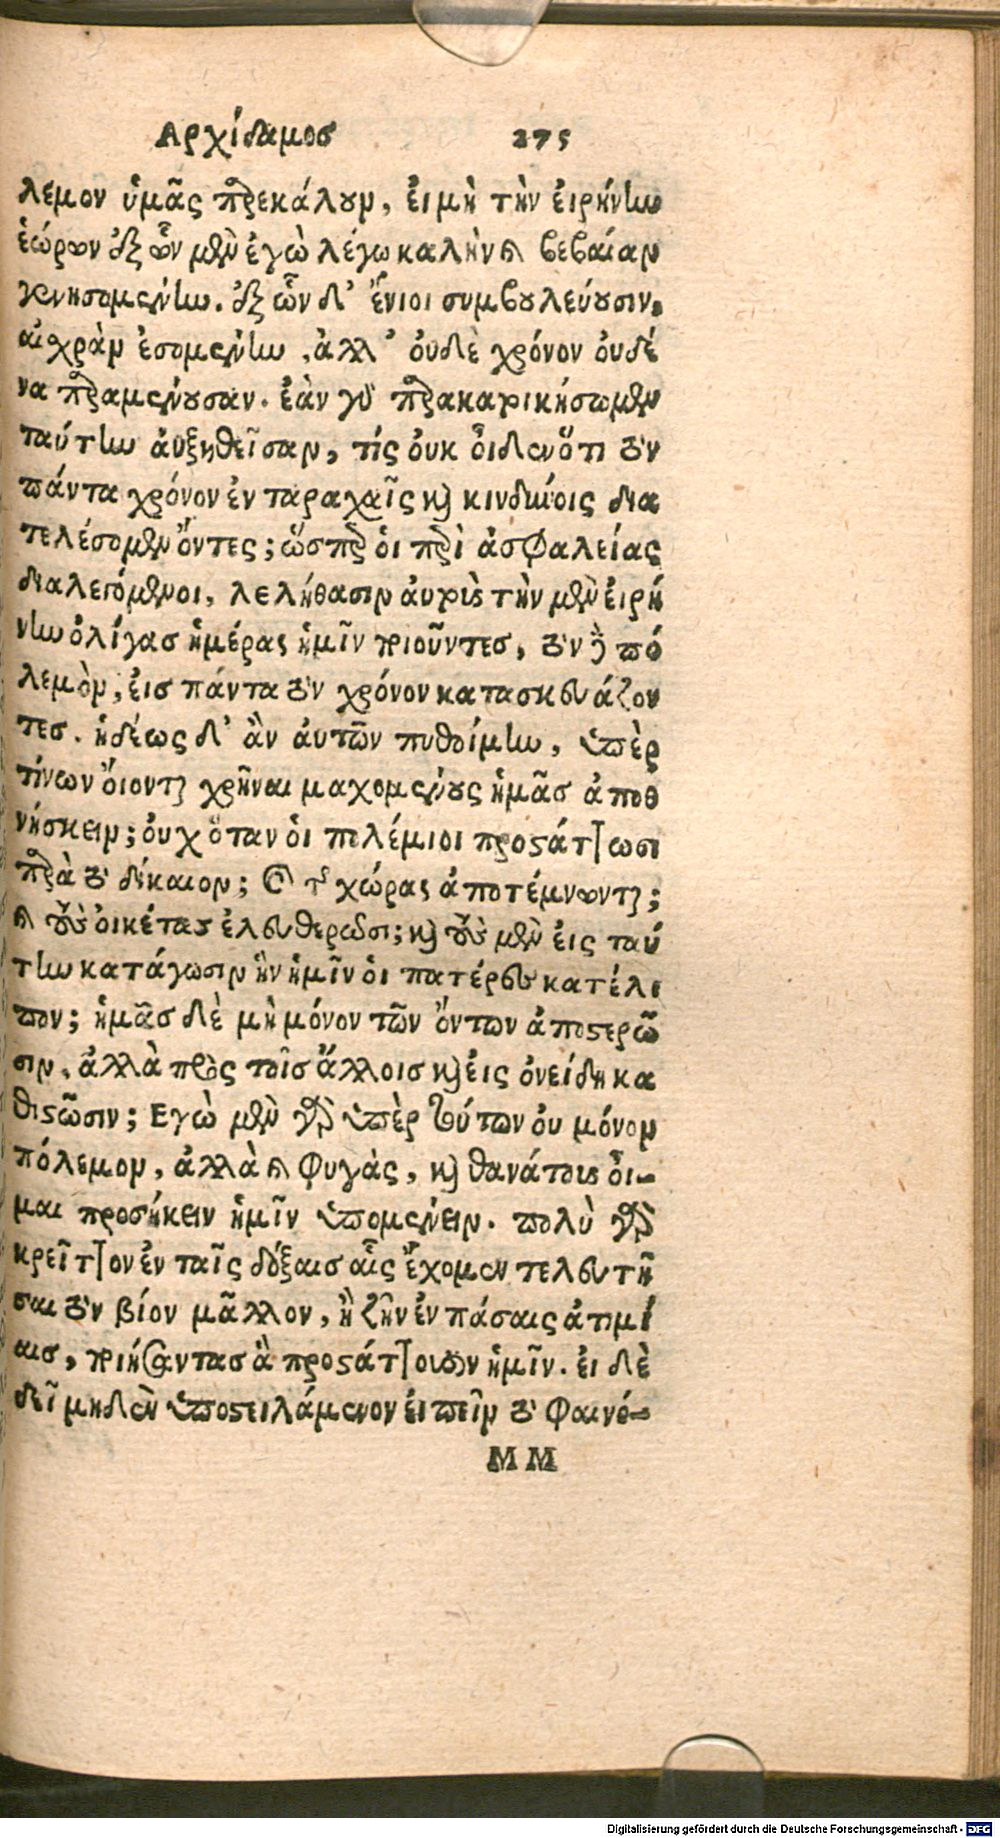 Αρχίδαμοσ 275
λεμον ὑμᾶς παρεκάλουν, ἐι μὴ τὴν ἐιρήνην
ἑώρων ἐξ ὧν μὲν ἐγὼ λέγω καλὴν καὶ βεβαίαν
γενησομένην. ἐξ ὧν δ' ἔνιοι συμβουλεύουσιν,
αἰσχρὰν ἐσομένην, ἀλλ' ὀυδὲ χρόνον ὀυδέ
να παραμένουσαν. ἐὰν γὰρ παρακατοικήσωμεν
ταύτην ἀυξηθεῖσαν, τίς ὀυκ ὀῖδεν ὅτι τὸν
πάντα χρόνον ἐν ταραχαῖς καὶ κινδύνοις δια
τελέσομεν ὄντες; ὥσπερ ὁι περὶ ἀσφαλείας
διαλεγόμενοι, λελήθασιν ἀυτοὺς τὴν μὲν ἐιρή
νην ὀλίγασ ἡμέρας ἡμῖν ποιοῦντεσ, τὸν δὲ πό
λεμὸν, ἐισ πάντα τὸν χρόνον κατασκευάζον
τεσ. ἡδέως δ' ἂν ἀυτῶν πυθοίμην, ὑπὲρ
τίνων ὄιονται χρῆναι μαχομένους ἡμᾶσ ἀποθ
νήσκειν; ὀυχ ὅταν ὁι πολέμιοι προστάττωσι
παρὰ τὸ δίκαιον; καὶ τῆς χώρας ἀποτέμνωνται;
καὶ τοὺς ὀικέτας ἐλευθερῶσι; καὶ τοὺς μὲν ἐις ταύ
την κατάγωσιν ἣν ἡμῖν ὁι πατέρες κατέλι
πον; ἡμᾶσ δὲ μὴ μόνον τῶν ὄντων ἀποστερῶ
σιν, ἀλλὰ πρὸς τοῖσ ἄλλοισ καὶ ἐις ὀνείδη κα
θιστῶσιν; Εγὼ μὲν γὰρ ὑπὲρ τούτων ὀυ μόνον
πόλεμον, ἀλλὰ καὶ φυγὰς, καὶ θανάτους ὀῖ-
μαι προσήκειν ἡμῖν ὑπομένειν. πολὺ γὰρ
κρεῖττον ἐν ταῖς δόξαισ αἷς ἔχομεν τελευτῆ
σαι τὸν βίον μᾶλλον, ἢ ζῆν ἐν πάσαις ἀτιμί
αισ, ποιήσαντασ ἃ προστάττουσιν ἡμῖν. ἐι δὲ
δεῖ μηδὲν ὑποστειλάμενον ἐιπεῖν τὸ φαινό-
M M
Digitalisierung gefördert durch die Deutsche Forschungsgemeinschaft - DFG